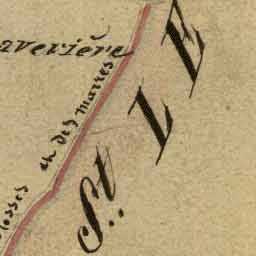 averière
ch des marres
fosses
St. LE